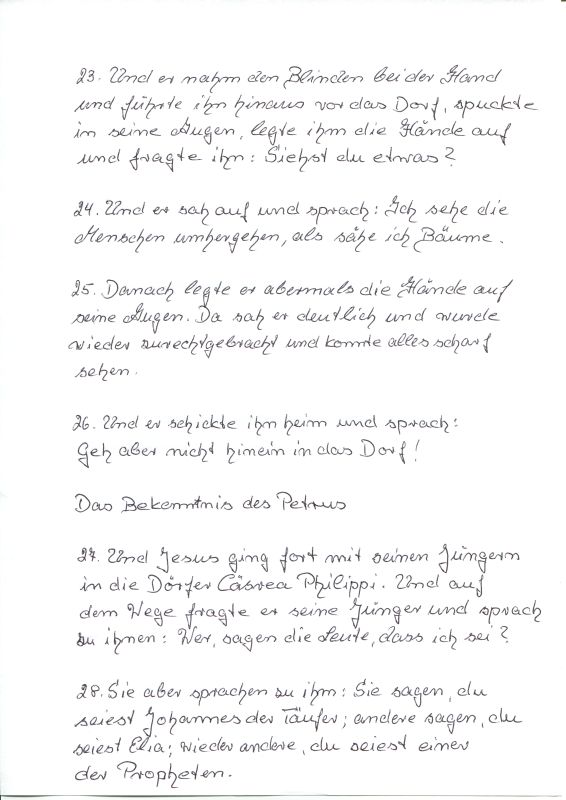 23. Und er nahm den Blinden bei der Hand
und führte ihn hinaus vor das Dorf, spuckte
in seine Augen, legte ihm die Hände auf
und fragte ihn: Siehst du etwas?
24. Und er sah auf und sprach: Ich sehe die
Menschen umhergehen, als sähe ich Bäume.
25. Danach legte er abermals die Hände auf
seine Augen. Da sah er deutlich und wurde
wieder zurechtgebracht und konnte alles scharf
sehen.
26. Und er schickte ihn heim und sprach:
Geh aber nicht hinein in das Dorf!
Das Bekenntnis des Petrus
27. Und Jesus ging fort mit seinen Jüngern
in die Dörfer Cäsarea Philippi. Und auf
dem Wege fragte er seine Jünger und sprach
zu ihnen: Wer, sagen die Leute, dass ich sei?
28. Sie aber sprachen zu ihm: Sie sagen, du
seiest Johannes der Täufer; andere sagen, du
seiest Elia; wieder andere, du seiest einer
der Propheten.